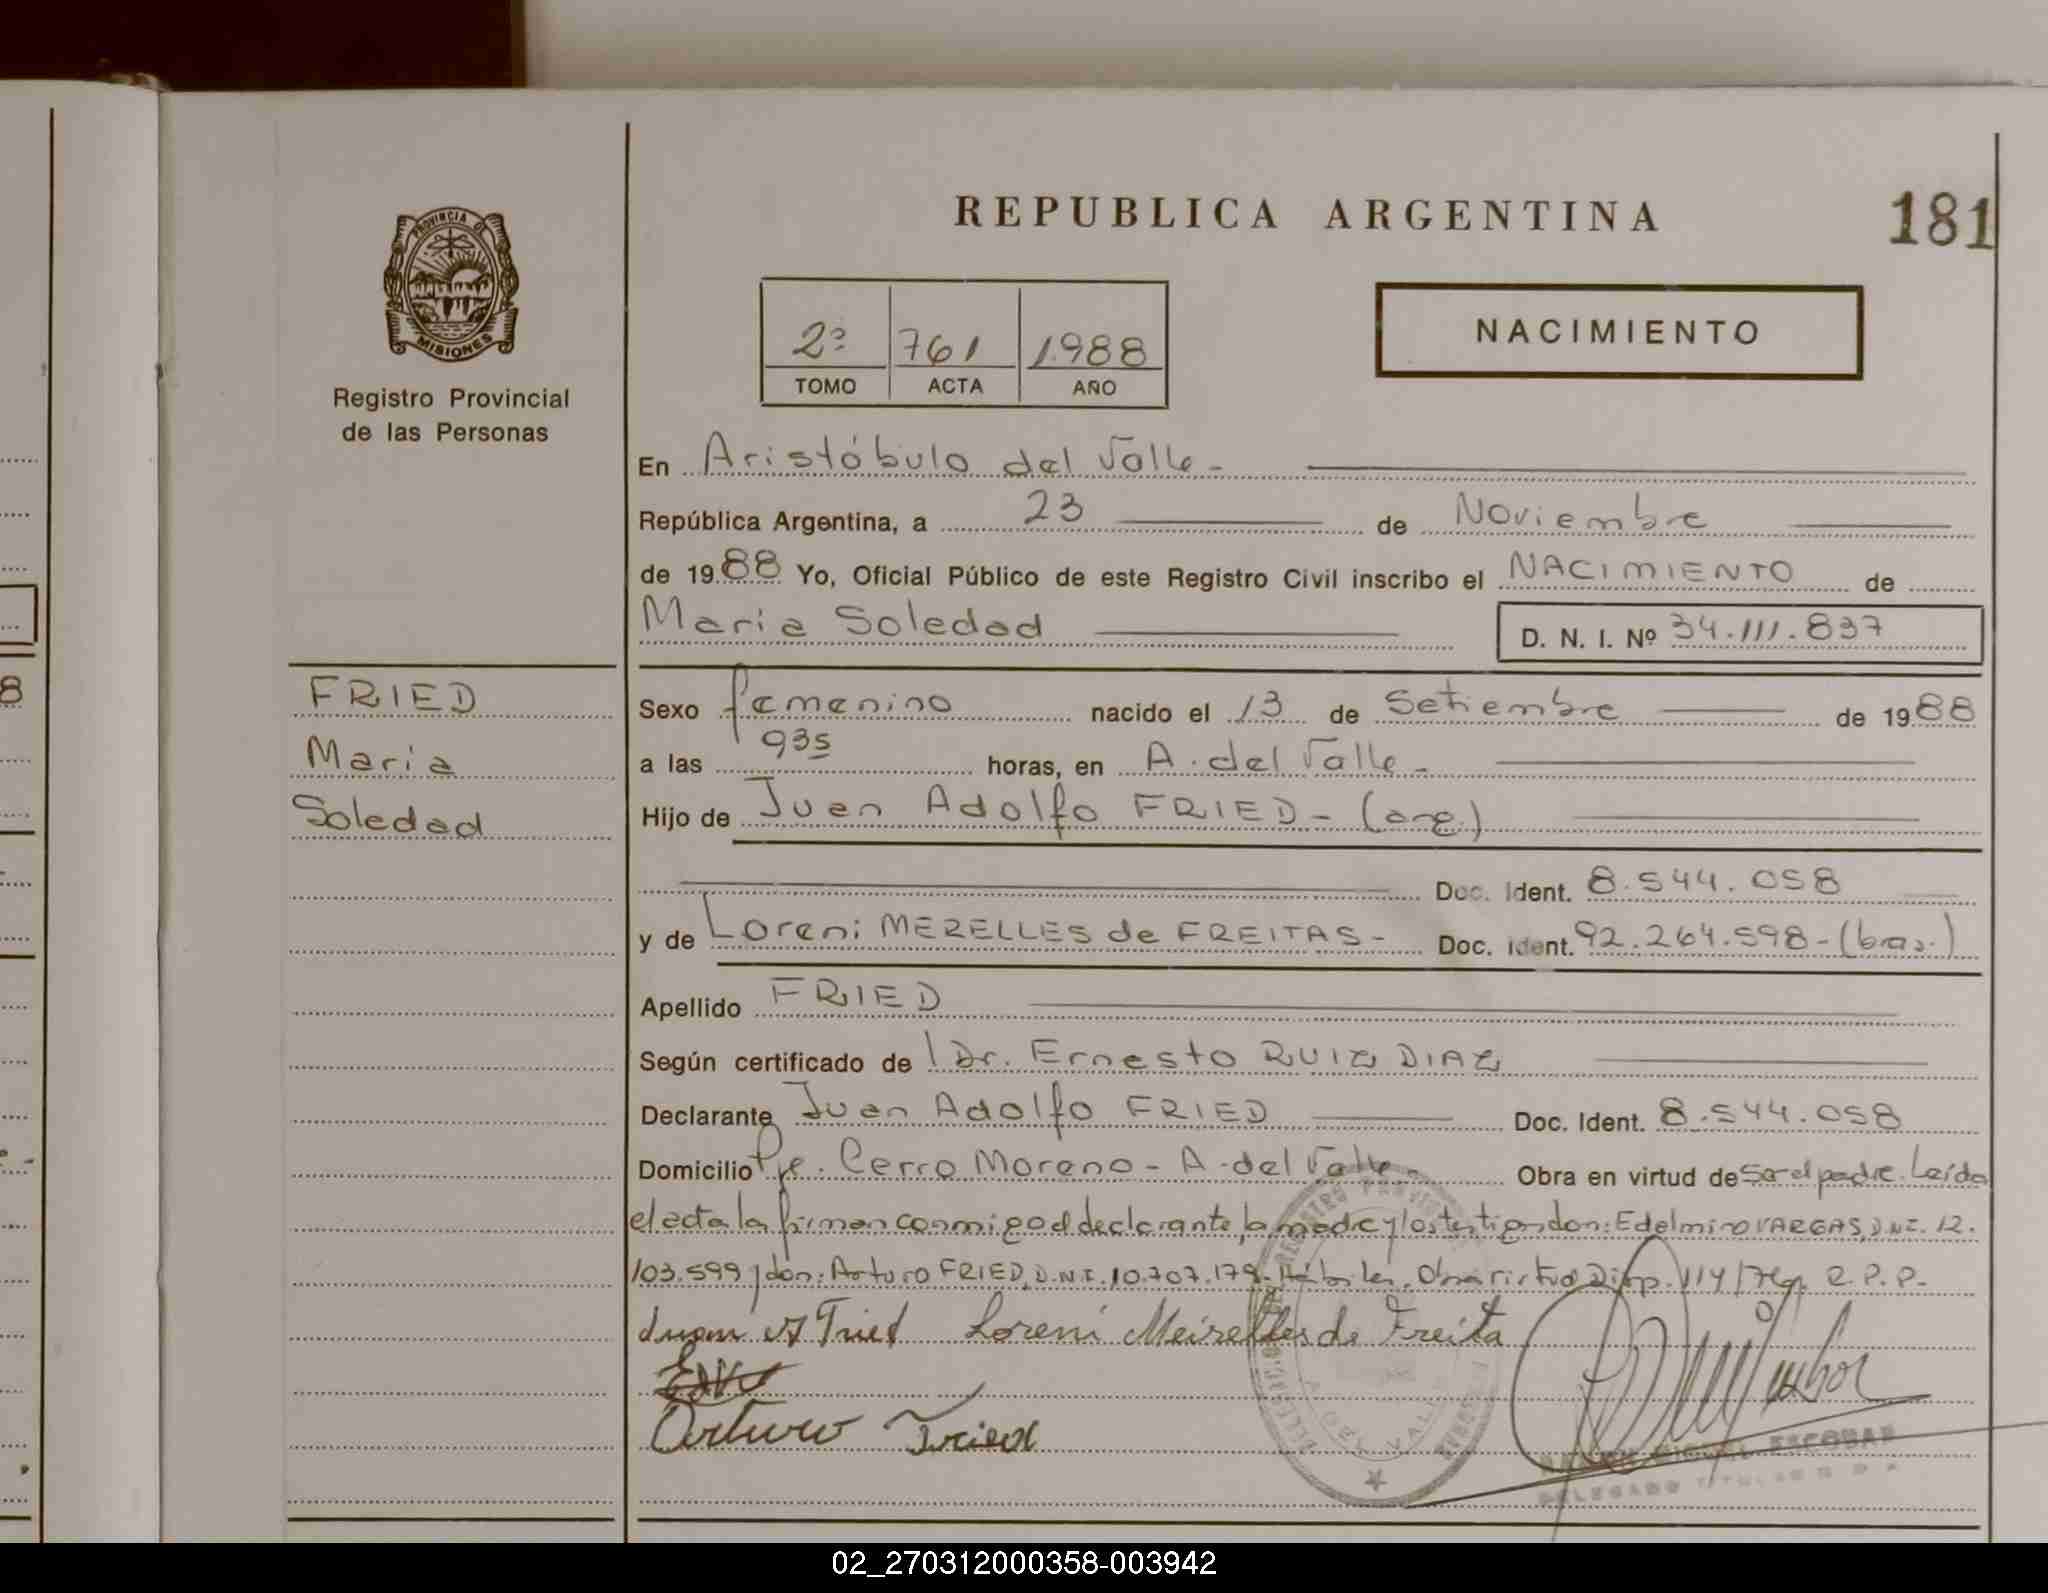 REPUBLICA ARGENTINA
181
PROVINCIA DE
MISIONES
Registro Provincial
de las Personas
2º 761 1988
TOMO ACTA AÑO
NACIMIENTO
En Aristóbulo del Valle -
República Argentina, a 23 de Noviembre
de 1988 Yo, Oficial Público de este Registro Civil inscribo el NACIMIENTO de
Maria Soledad D. N. I. Nº 34.111.837
FRIED
Maria
Soledad
Sexo femenino nacido el 13 de Setiembre de 1988
a las 935 horas, en A. del Valle -
Hijo de Juan Adolfo FRIED - (arg.)
Doc. Ident. 8.544.058
y de Loreni MERELLES de FREITAS - Doc. ident. 92.264.598 - (bras.)
Apellido FRIED
Según certificado de Dr. Ernesto RUIZ DIAZ
Declarante Juan Adolfo FRIED Doc. Ident. 8.544.058
Domicilio Pje. Cerro Moreno - A. del Valle - Obra en virtud de Ser el padre. Leída
el acta la firman conmigo el declarante, la madre y los testigos don: Edelmiro VARGAS, D.N.I. 12.
103.599 y don: Arturo FRIED, D.N.I. 10.707.179 - Hábiles. Disp. 114/ R.P.P.-
Juan A Fried Loreni Meirelles de Freita
Arturo Fried
A. DEL VALLE
MIGUEL ESCOBAR
DELEGADO TITULAR
8
02_270312000358-003942